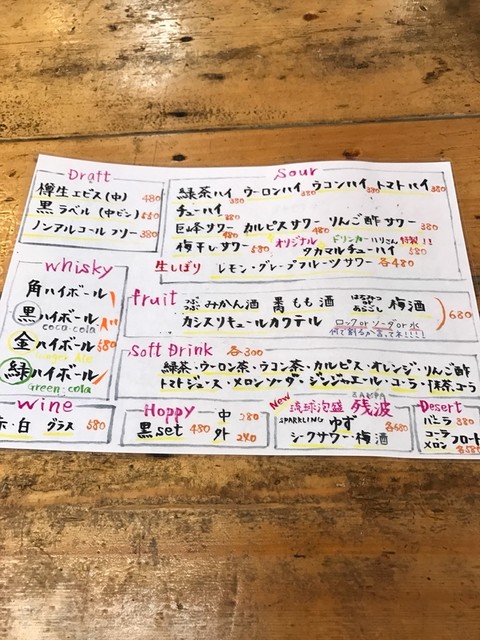 Draft
樽生エビス(中) 480
黒ラベル(中ビン) 580
ノンアルコール フリー 380
Sour
緑茶ハイ380 ウーロンハイ380 ウコンハイ380 トマトハイ380
チューハイ380
巨峰サワー480 カルピスサワー480 りんご酢サワー380
梅干しサワー580 オリジナル ドリンカーハリさん特製!!
タカマルチューハイ580
生しぼり レモン・グレープフルーツサワー 各480
whisky
角ハイボール
黒ハイボール
coca-cola
金ハイボール 580
Ginger Ale
緑ハイボール
Green-cola
fruit
つぶつぶみかん酒 もも酒 はなれつ あらごし 梅酒 680
カシスリキュールカクテル ロック or ソーダ or 水
何で割るか言って下さい!!!!
Soft Drink 各300
緑茶・ウーロン茶・ウコン茶・カルピス・オレンジ・りんご酢
トマトジュース・メロンソーダ・ジンジャエール・コーラ・抹茶コーラ
Wine
赤・白 グラス 580
Hoppy
黒set 480
中 280
外 240
New
琉球泡盛 残波
ZANPA
SPARKLING ゆず
シークワサー・梅酒 各680
Desert
バニラ 380
コーラ フロート
メロン 各580